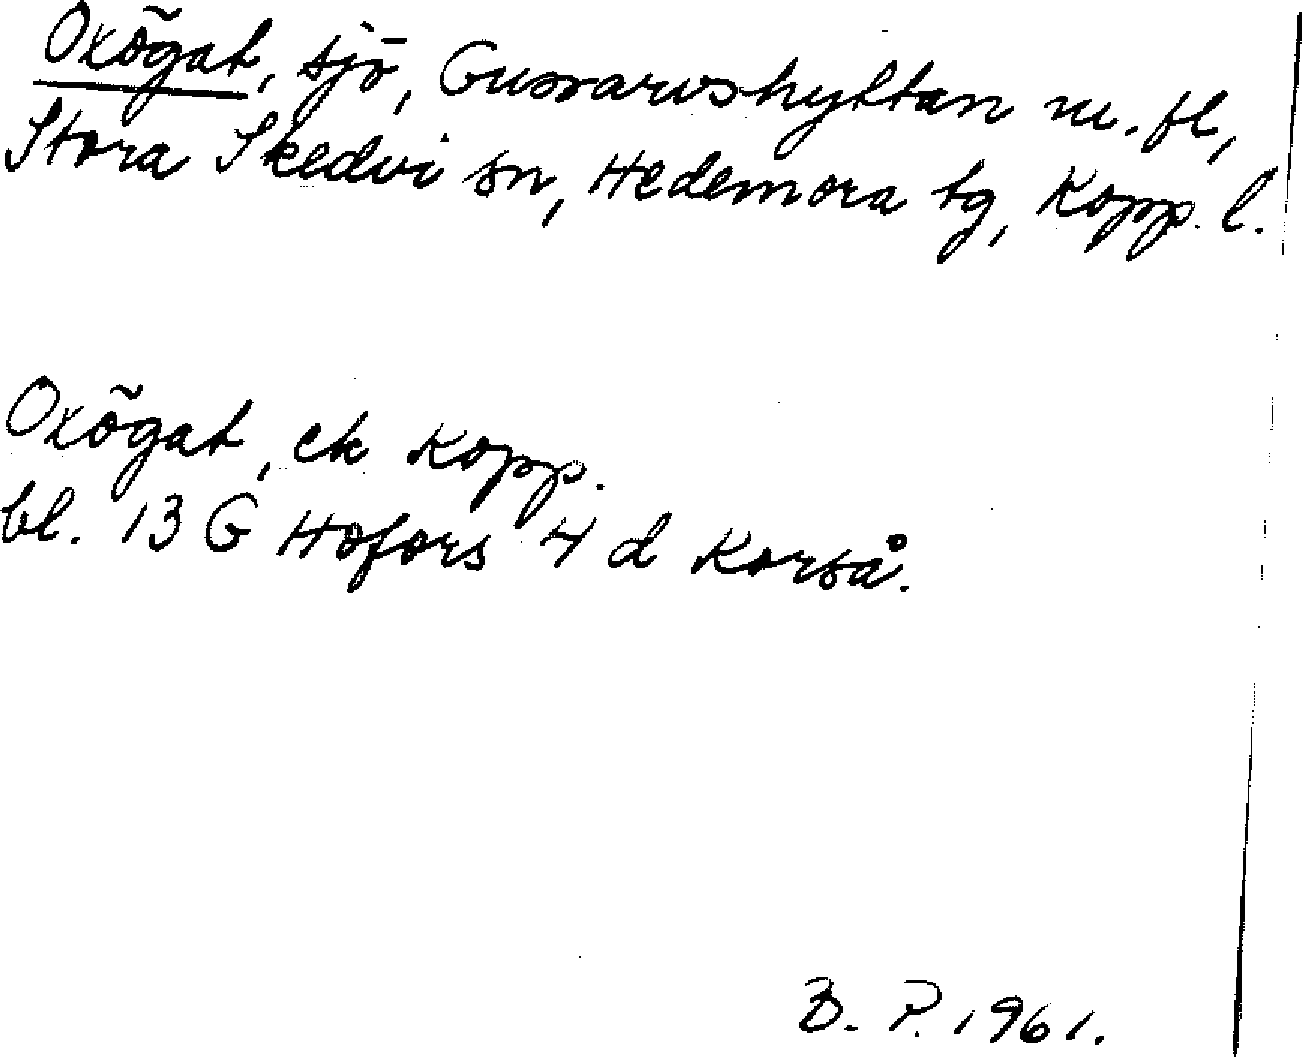 Oxögat, sjö, Gussarvshyttan m. fl,
Stora Skedvi sn, Hedemora tg, Kopp. l.
Oxögat, ek Kopp.
bl. 13 G Hofors 4 d Korså.
B. P. 1961.